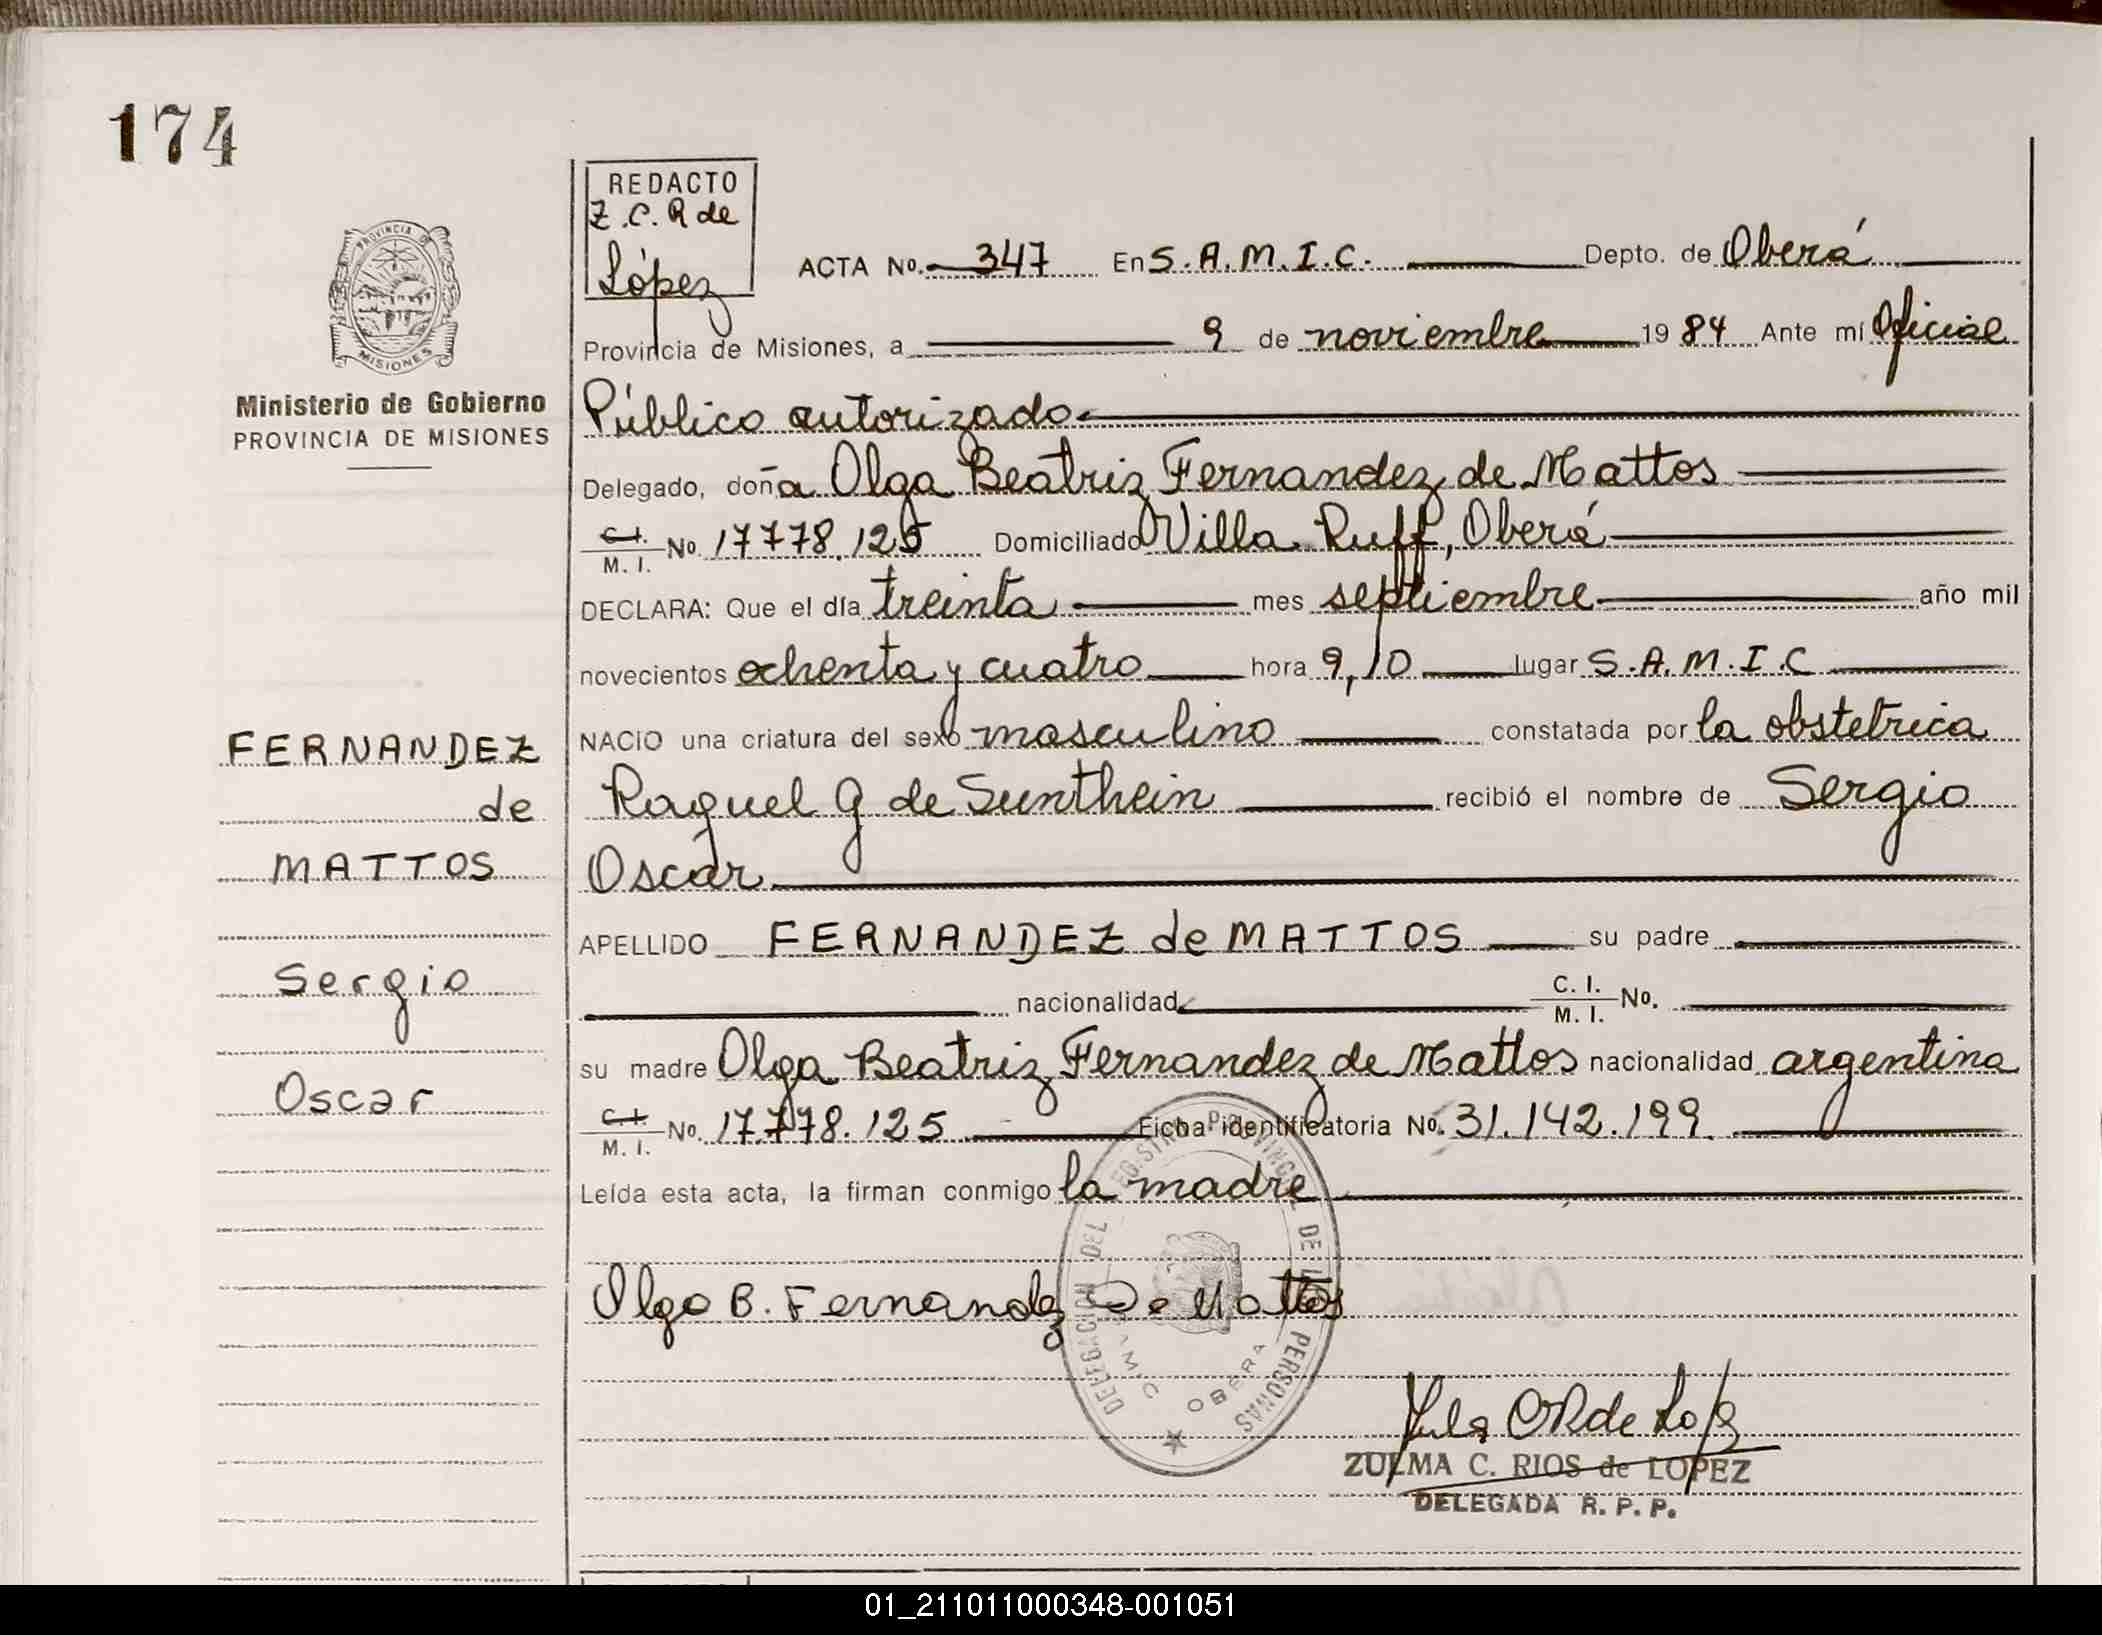 174
PROVINCIA DE
MISIONES
Ministerio de Gobierno
PROVINCIA DE MISIONES
FERNANDEZ
de
MATTOS
Sergio
Oscar
REDACTO
Z.C.R de
López
ACTA No. 347 En S.A.M.I.C. Depto. de Oberá
Provincia de Misiones, a 9 de noviembre 1984 Ante mí Oficial
Público autorizado
Delegado, doña Olga Beatriz Fernandez de Mattos
C.I. / M.I. No. 17778.125 Domiciliado Villa Ruff, Oberá
DECLARA: Que el día treinta mes septiembre año mil
novecientos ochenta y cuatro hora 9,10 lugar S.A.M.I.C
NACIO una criatura del sexo masculino constatada por la obstetrica
Raquel G de Sunthein recibió el nombre de Sergio
Oscar
APELLIDO FERNANDEZ de MATTOS su padre
nacionalidad C. I. / M. I. No.
su madre Olga Beatriz Fernandez de Mattos nacionalidad argentina
C.I. / M. I. No. 17.778.125 Ficha identificatoria No. 31.142.199
Leída esta acta, la firman conmigo la madre
Olga B. Fernandez De Mattos
DELEGACION DEL REGISTRO PROVINCIAL DE LAS PERSONAS
SAMIC OBERA
Zulma C R de Lopez
ZULMA C. RIOS de LOPEZ
DELEGADA R. P. P.
01_211011000348-001051